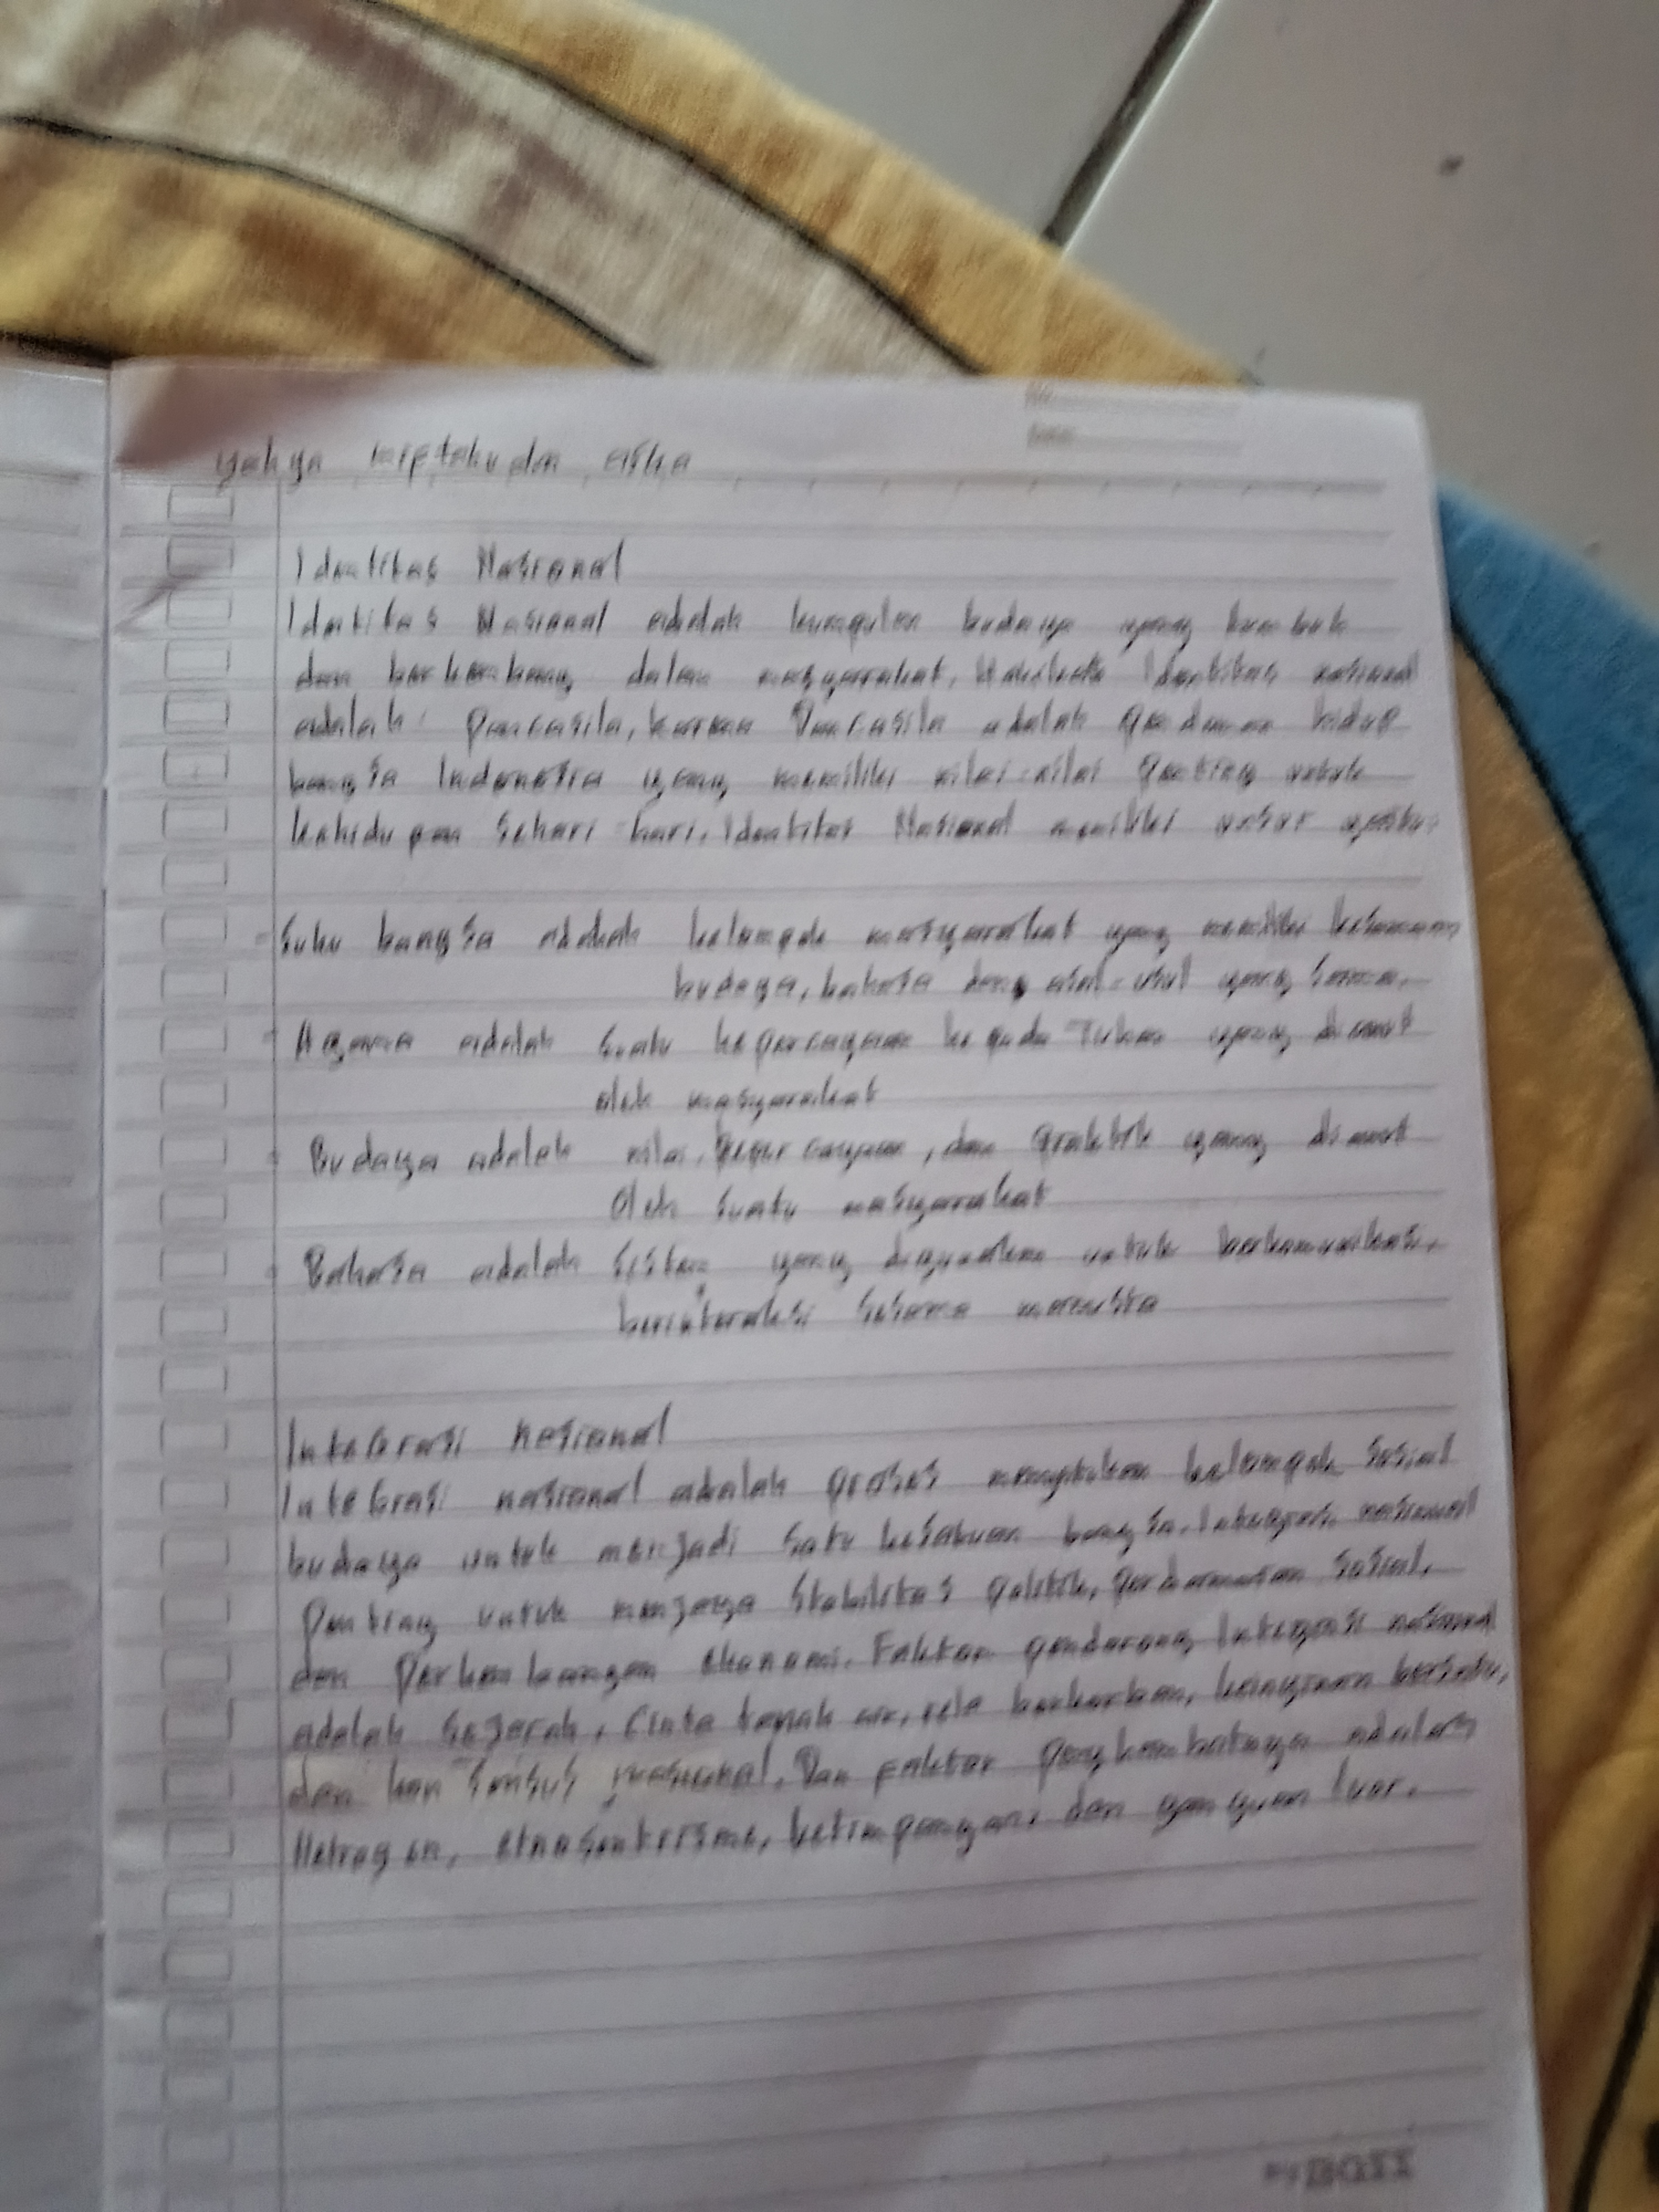 Identitas Nasional
Identitas Nasional adalah kumpulan budaya yang tumbuh
dan berkembang dalam masyarakat. Identitas nasional
adalah Pancasila, karena Pancasila adalah pedoman hidup
bangsa Indonesia yang memiliki nilai-nilai penting untuk
kehidupan sehari-hari. Identitas Nasional memiliki unsur
- Suku bangsa adalah kelompok masyarakat yang memiliki kesamaan
budaya, bahasa dan asal-usul yang sama.
- Agama adalah suatu kepercayaan kepada Tuhan yang dianut
oleh masyarakat
- Budaya adalah nilai, kepercayaan, dan praktik yang dianut
oleh suatu masyarakat
- Bahasa adalah sistem yang digunakan untuk berkomunikasi,
berinteraksi sesama manusia
Integrasi nasional
Integrasi nasional adalah proses menyatukan kelompok sosial
budaya untuk menjadi satu kesatuan bangsa. Integrasi nasional
penting untuk menjaga stabilitas politik, perdamaian sosial,
dan Perkembangan ekonomi. Faktor pendorong Integrasi nasional
adalah sejarah, cinta tanah air, rela berkorban, keinginan bersatu,
dan konsensus nasional. Dan faktor penghambatnya adalah
Hetrogen, etnosentrisme, ketimpangan dan gangguan luar.